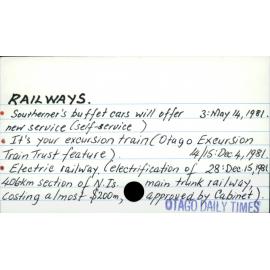 RAILWAYS.
• Southerner's buffet cars will offer 3: May 14, 1981.
new service (self-service)
• It's your excursion train (Otago Excursion
Train Trust feature). 14/15: Dec 4, 1981.
• Electric railway (electrification of 28: Dec 15, 1981
406km section of N.Is. main trunk railway,
costing almost $200m, approved by Cabinet).
OTAGO DAILY TIMES